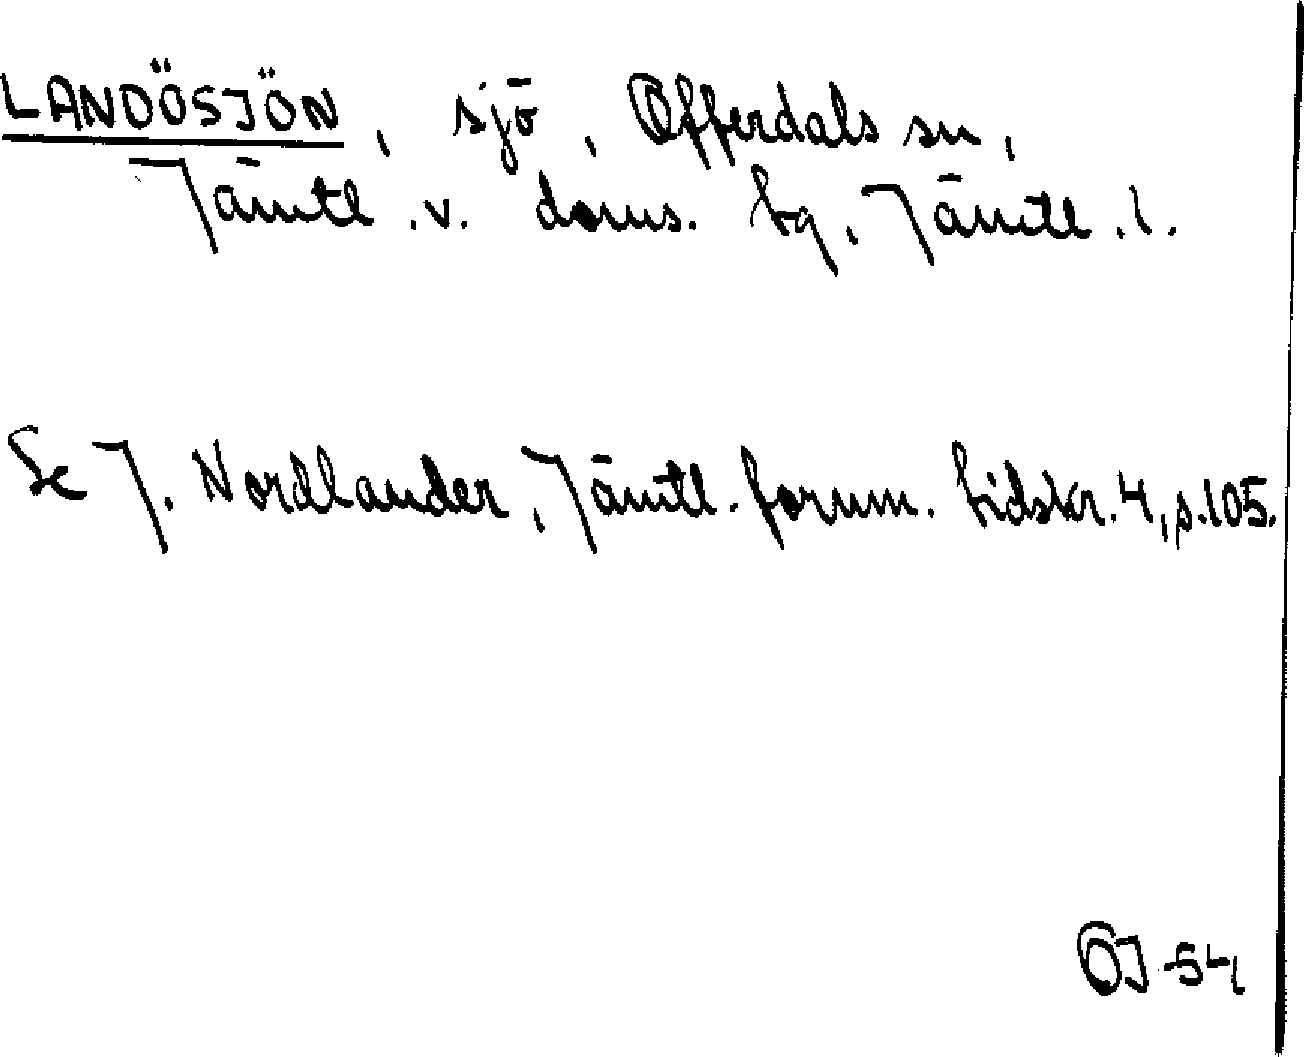 LANDÖSJÖN, sjö, Offerdals sn,
Jämtl. v. doms. tg, Jämtl. l.
Se J. Nordlander, Jämtl. fornm. tidskr. 4, s. 105.
OJ 54